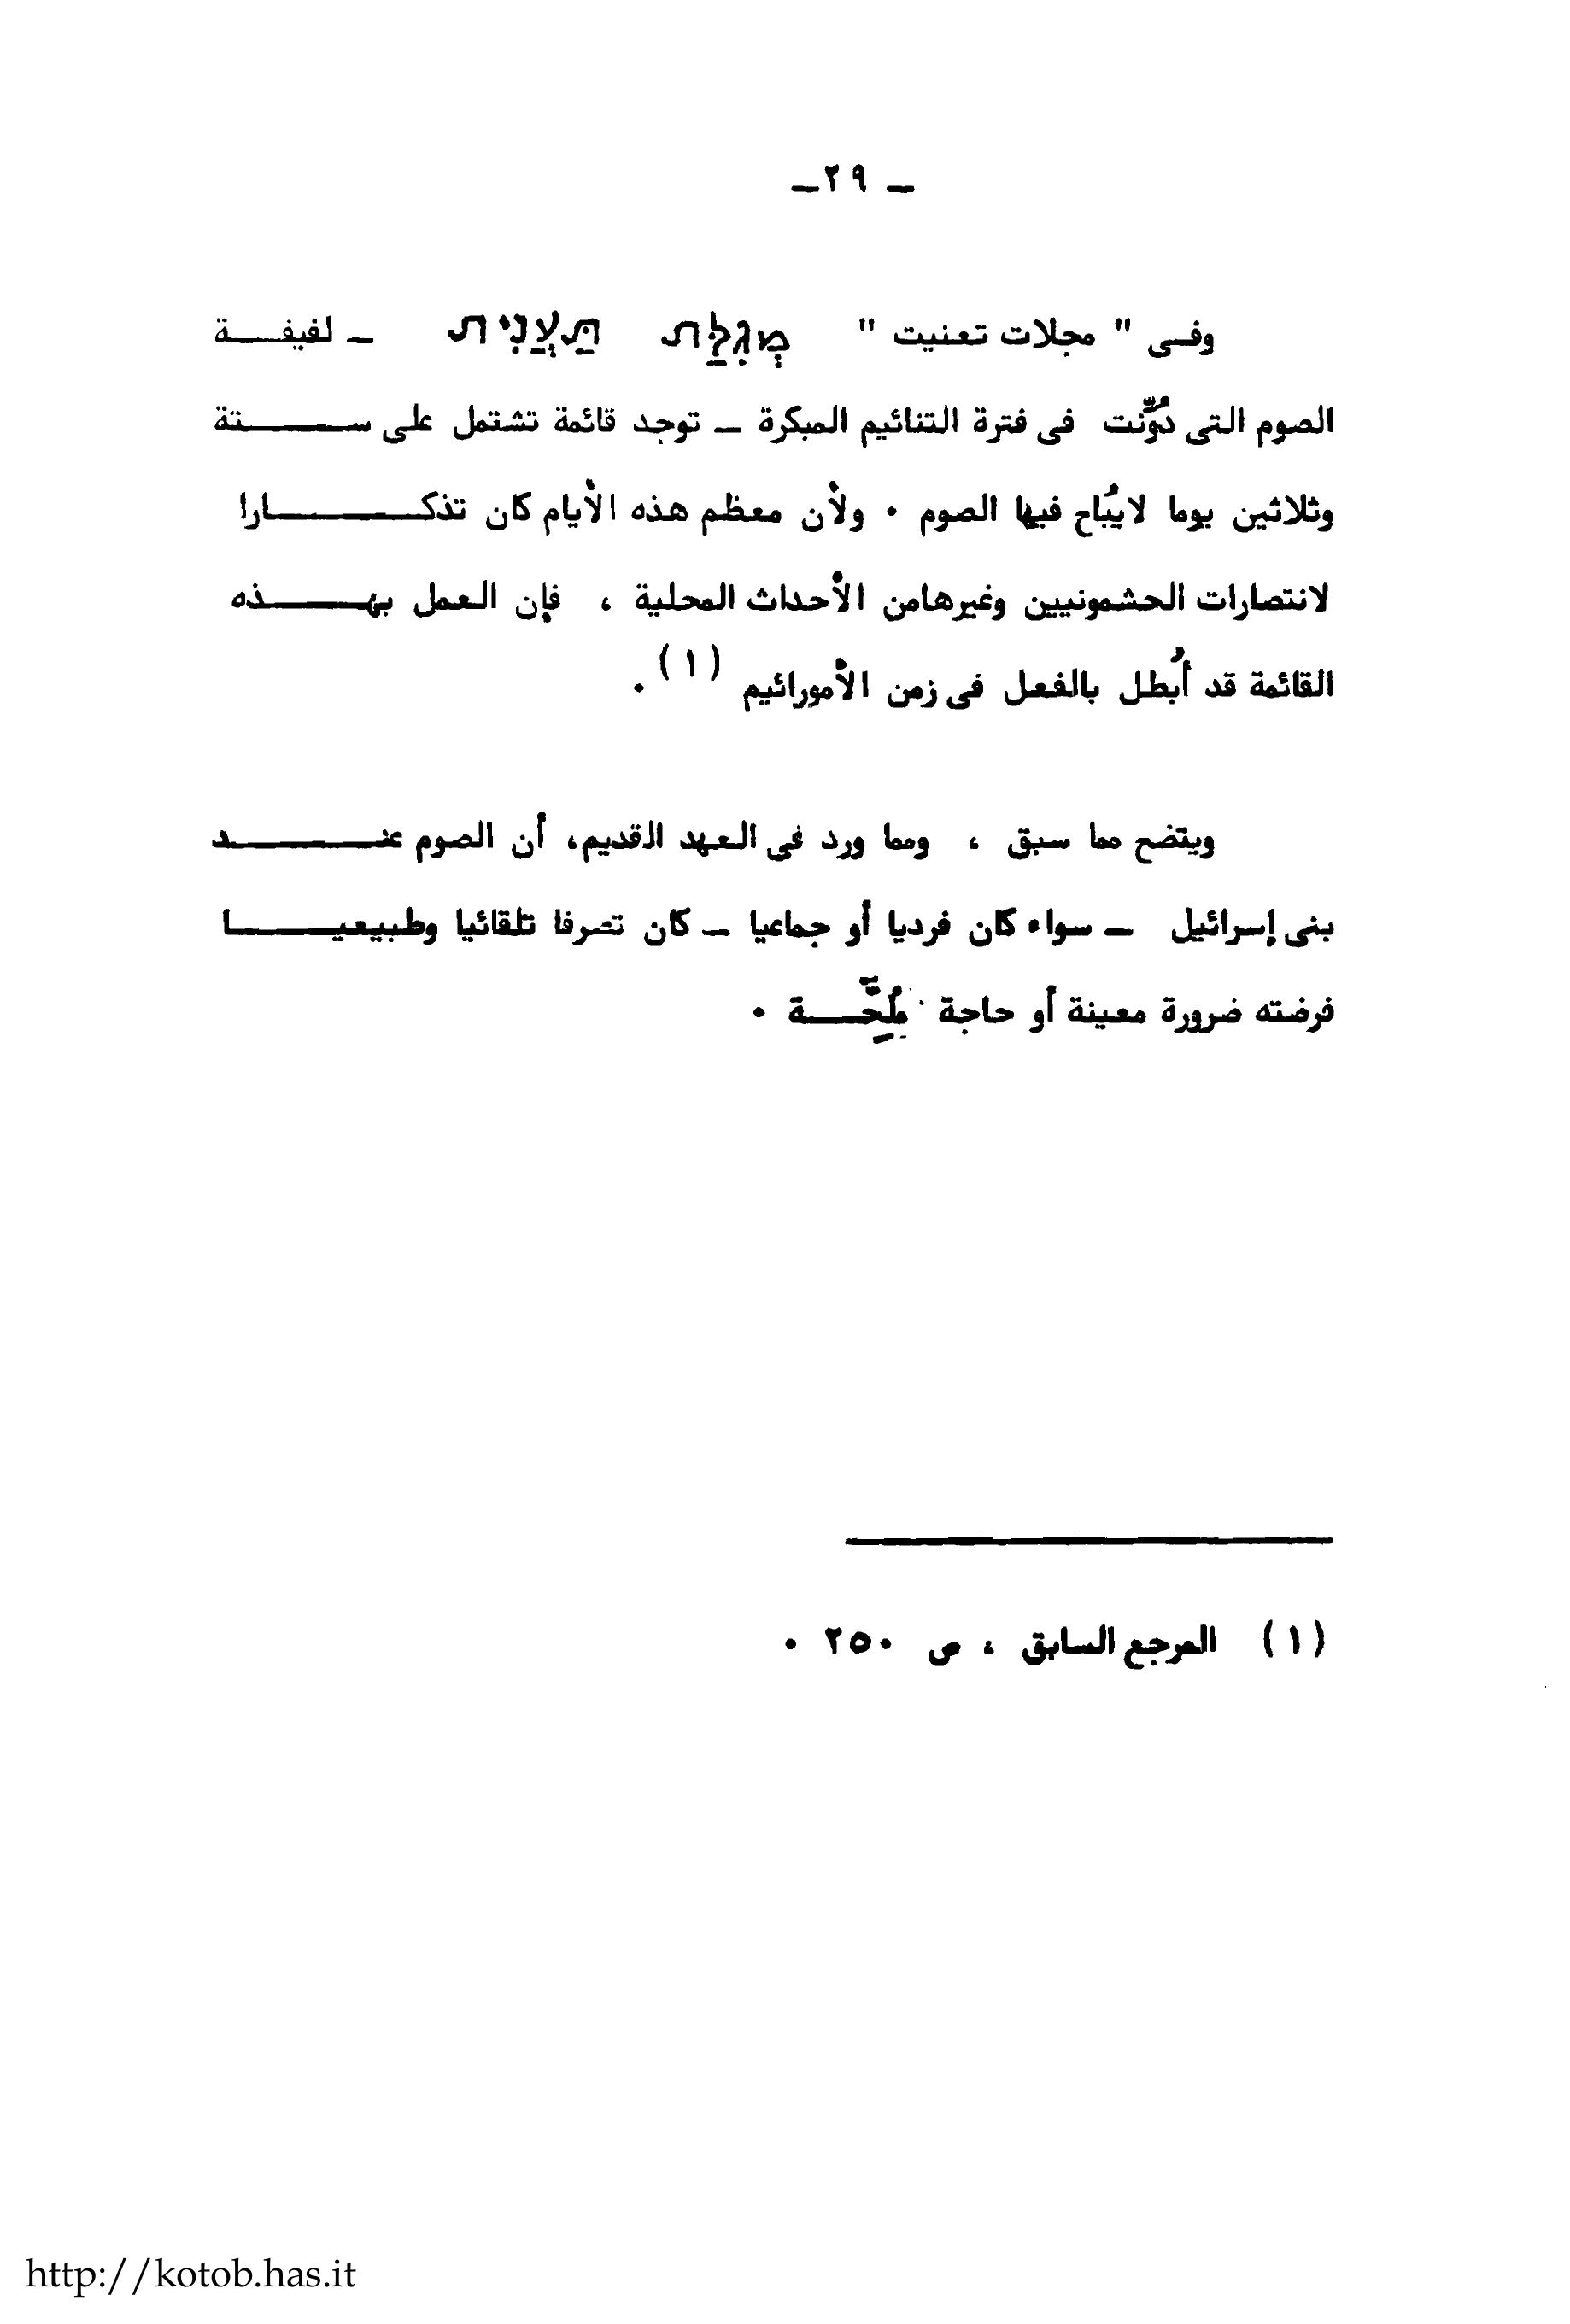 ـ ٢٩ـ
وفـى " مجلات تعنيت " מְגִלַּת תַּעֲנִית ـ لفيفـــة
الصوم التى دُوِّنت فى فترة التنائيم المبكرة ـ توجد قائمة تشتمل على ســـــتة
وثلاثين يوما لايُباح فيها الصوم ٠ ولأن معظم هذه الأيام كان تذكــــــارا
لانتصارات الحشمونيين وغيرهامن الأحداث المحلية ، فإن العمل بهـــــذه
القائمة قد أُبطل بالفعل فى زمن الأمورائيم (١)٠
ويتضح مما سبق ، ومما ورد فى العهد القديم، أن الصوم عنــــــد
بنى إسرائيل ـ سواء كان فرديا أو جماعيا ـ كان تصرفا تلقائيا وطبيعيــــا
فرضته ضرورة معينة أو حاجة مُلِحَّـــة ٠
(١) المرجع السابق ، ص ٢٥٠ ٠
http://kotob.has.it